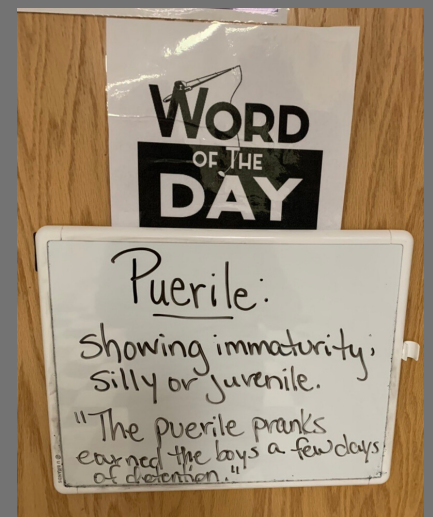 WORD
OF THE
DAY
Puerile:
showing immaturity;
silly or juvenile.
"The puerile pranks
earned the boys a few days
of detention."